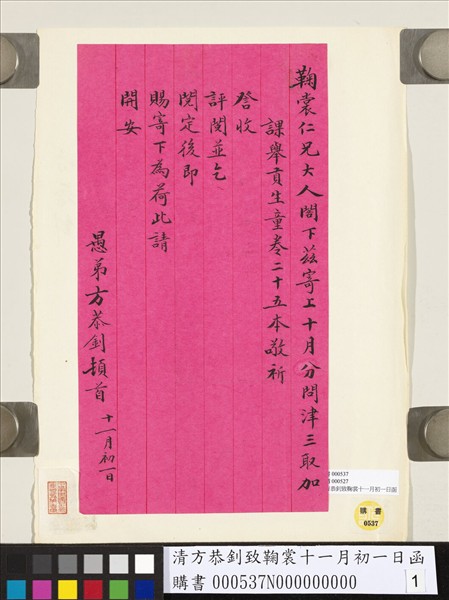 鞠裳仁兄大人閣下茲寄上十月分問津三取加
課舉貢生童卷二十五本敬祈
詧收
評閱並乞
閱定後即
賜寄下為荷此請
開安
愚弟方恭釗頓首 十一月初一日
000537
000527
恭釗致鞠裳十一月初一日函
購書
0537
清方恭釗致鞠裳十一月初一日函
購書 000537N000000000
1